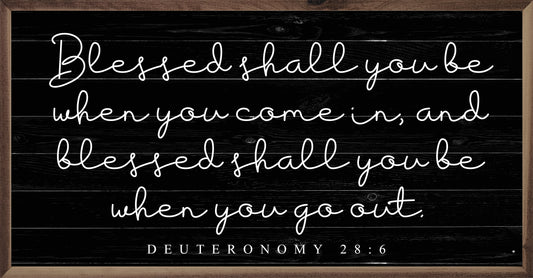 Blessed shall you be
when you come in, and
blessed shall you be
when you go out.
DEUTERONOMY 28:6